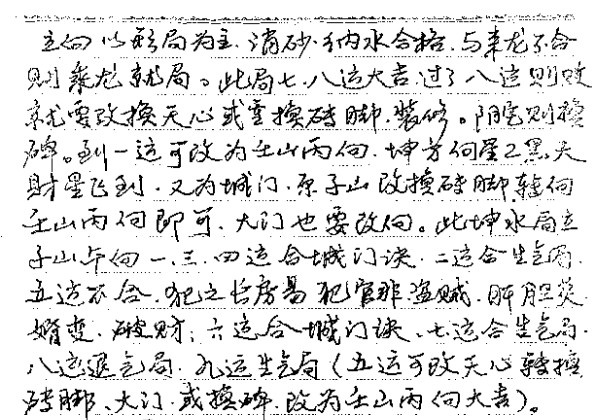 立向以形局为主、消砂、纳水合格、与来龙不合
则乘龙就局。此局七、八运大吉、过了八运则
就要改换天心或重换砖脚、装修。阴宅则换
碑。到一运可改为壬山丙向、坤方向星2黑天
财星飞到、又为城门、原子山改换砖脚、转向
壬山丙向即可、大门也要改向。此坤水局立
子山午向一、三、四运合城门诀、二运合生气局、
五运不合、犯之长房易犯官非盗贼、肝胆炎
婚变、破财；六运合城门诀、七运合生气局、
八运退气局、九运生气局（五运可改天心转换
砖脚、大门、或换碑、改为壬山丙向大吉）。